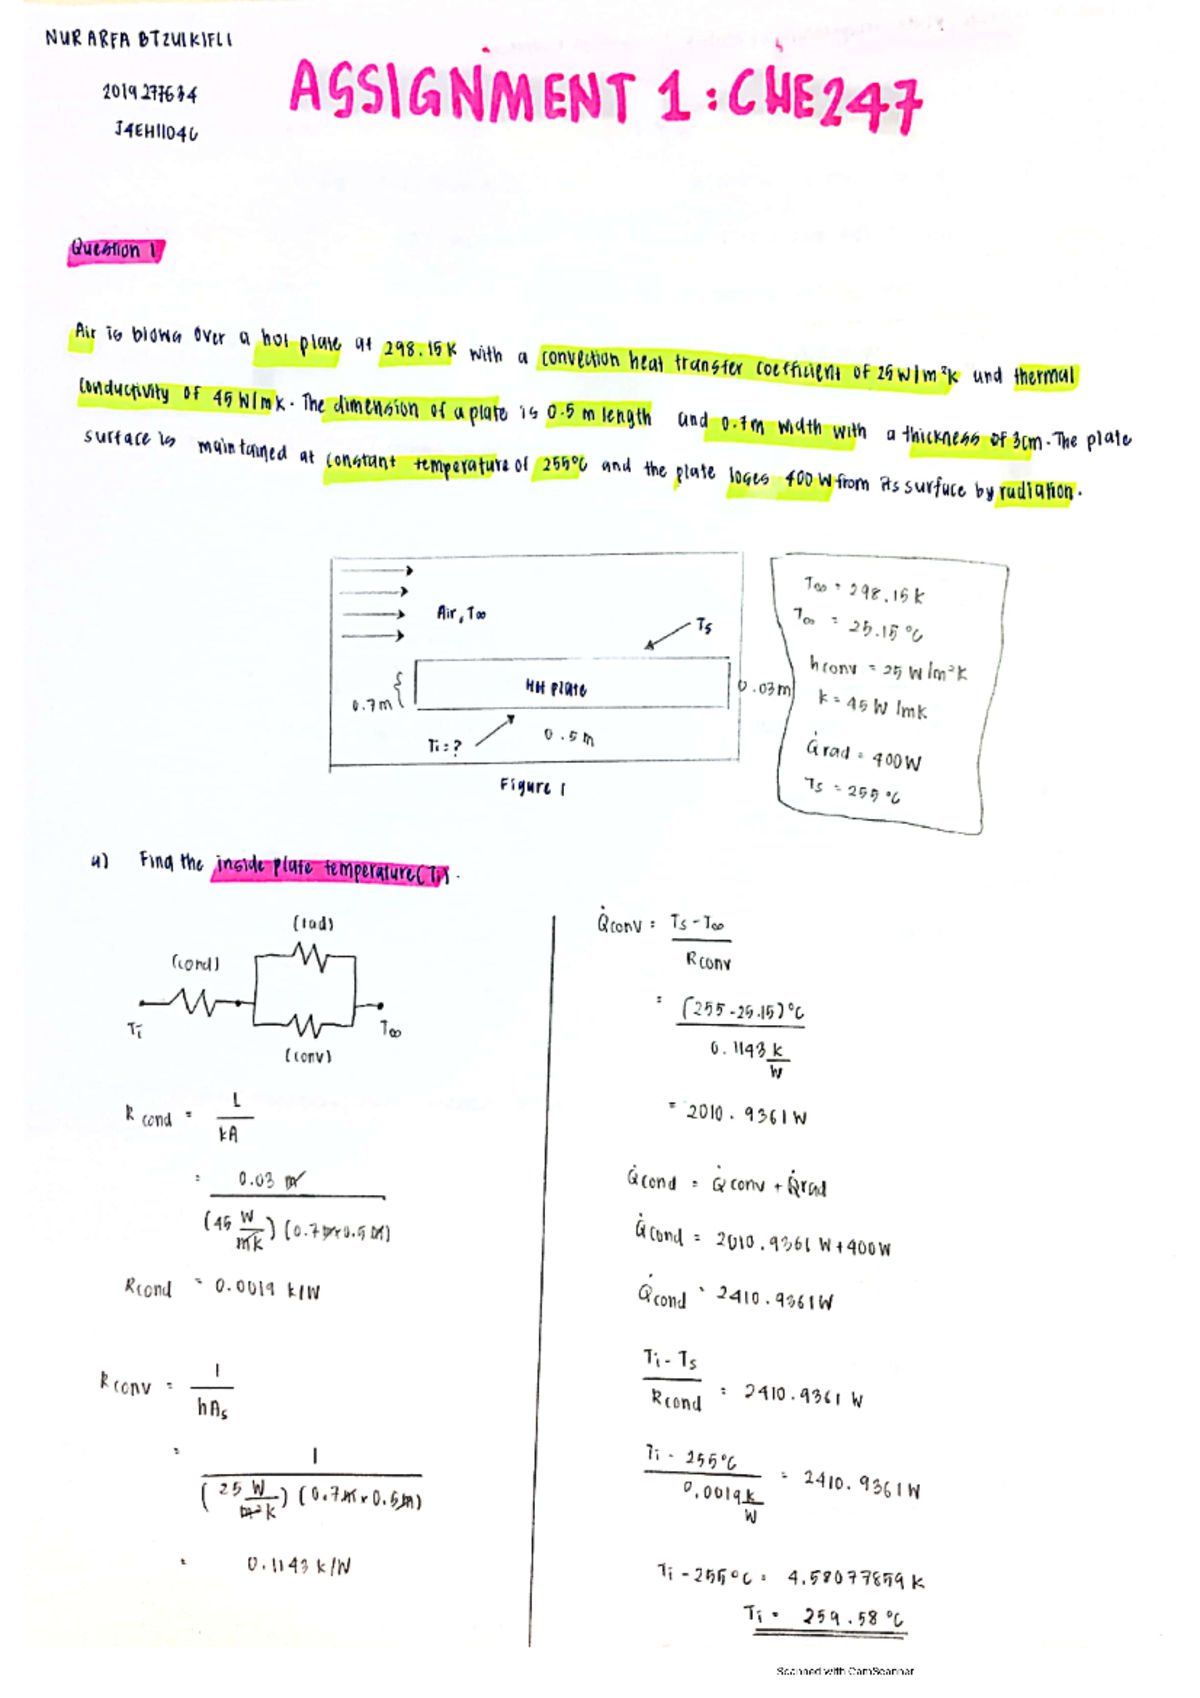 NUR ARFA BT ZULKIFLI
2019277634
J4EH1104C
ASSIGNMENT 1 : CHE247
Question 1
Air is blown over a hot plate at 298.15K with a convection heat transfer coefficient of 25 W/m²K and thermal
conductivity of 45 W/mK. The dimension of a plate is 0.5 m length and 0.7m width with a thickness of 3cm. The plate
surface is maintained at constant temperature of 255°C and the plate loses 400 W from its surface by radiation.
Air, T∞
Ts
Hot plate
0.7m
0.03m
Ti = ?
0.5m
Figure 1
T∞ = 298.15 K
T∞ = 25.15 °C
hconv = 25 W/m²K
k = 45 W/mK
Q̇rad = 400W
Ts = 255 °C
a) Find the inside plate temperature (Ti).
(rad)
(cond)
Ti
T∞
(conv)
Rcond = L
kA
= 0.03 m
(45 W/mK) (0.7m x 0.5m)
Rcond = 0.0019 K/W
Rconv = 1
hAs
= 1
(25 W/m²K) (0.7m x 0.5m)
= 0.1143 K/W
Q̇conv = Ts - T∞
Rconv
= (255 - 25.15)°C
0.1143 K/W
= 2010.9361 W
Q̇cond = Q̇conv + Q̇rad
Q̇cond = 2010.9361 W + 400W
Q̇cond = 2410.9361W
Ti - Ts
Rcond = 2410.9361 W
Ti - 255°C
0.0019 K/W = 2410.9361W
Ti - 255°C = 4.58077859 K
Ti = 259.58 °C
Scanned with CamScanner